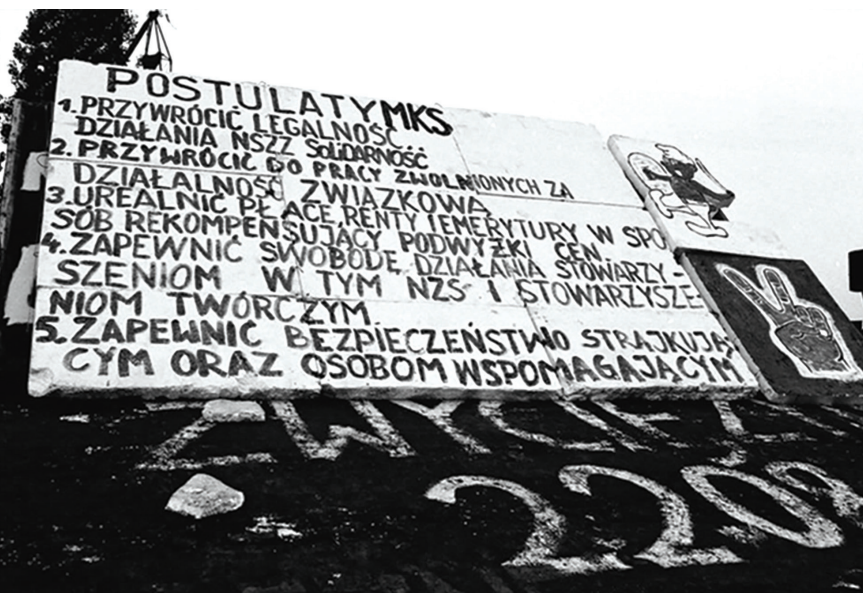 POSTULATY MKS
1. PRZYWRÓCIĆ LEGALNOŚĆ..
DZIAŁANIA NSZZ SOLIDARNOŚĆ
2. PRZYWRÓCIĆ DO PRACY ZWOLNIONYCH ZA
DZIAŁALNOŚĆ ZWIĄZKOWĄ
3. UREALNIĆ PŁACE, RENTY I EMERYTURY W SPO
SÓB REKOMPENSUJĄCY PODWYŻKI CEN.
4. ZAPEWNIĆ SWOBODĘ DZIAŁANIA STOWARZY-
SZENIOM W TYM NZS I STOWARZYSZE-
NIOM TWÓRCZYM
5. ZAPEWNIĆ BEZPIECZEŃSTWO STRAJKUJĄ
CYM ORAZ OSOBOM WSPOMAGAJĄCYM
ZWYCIĘŻ
22 08